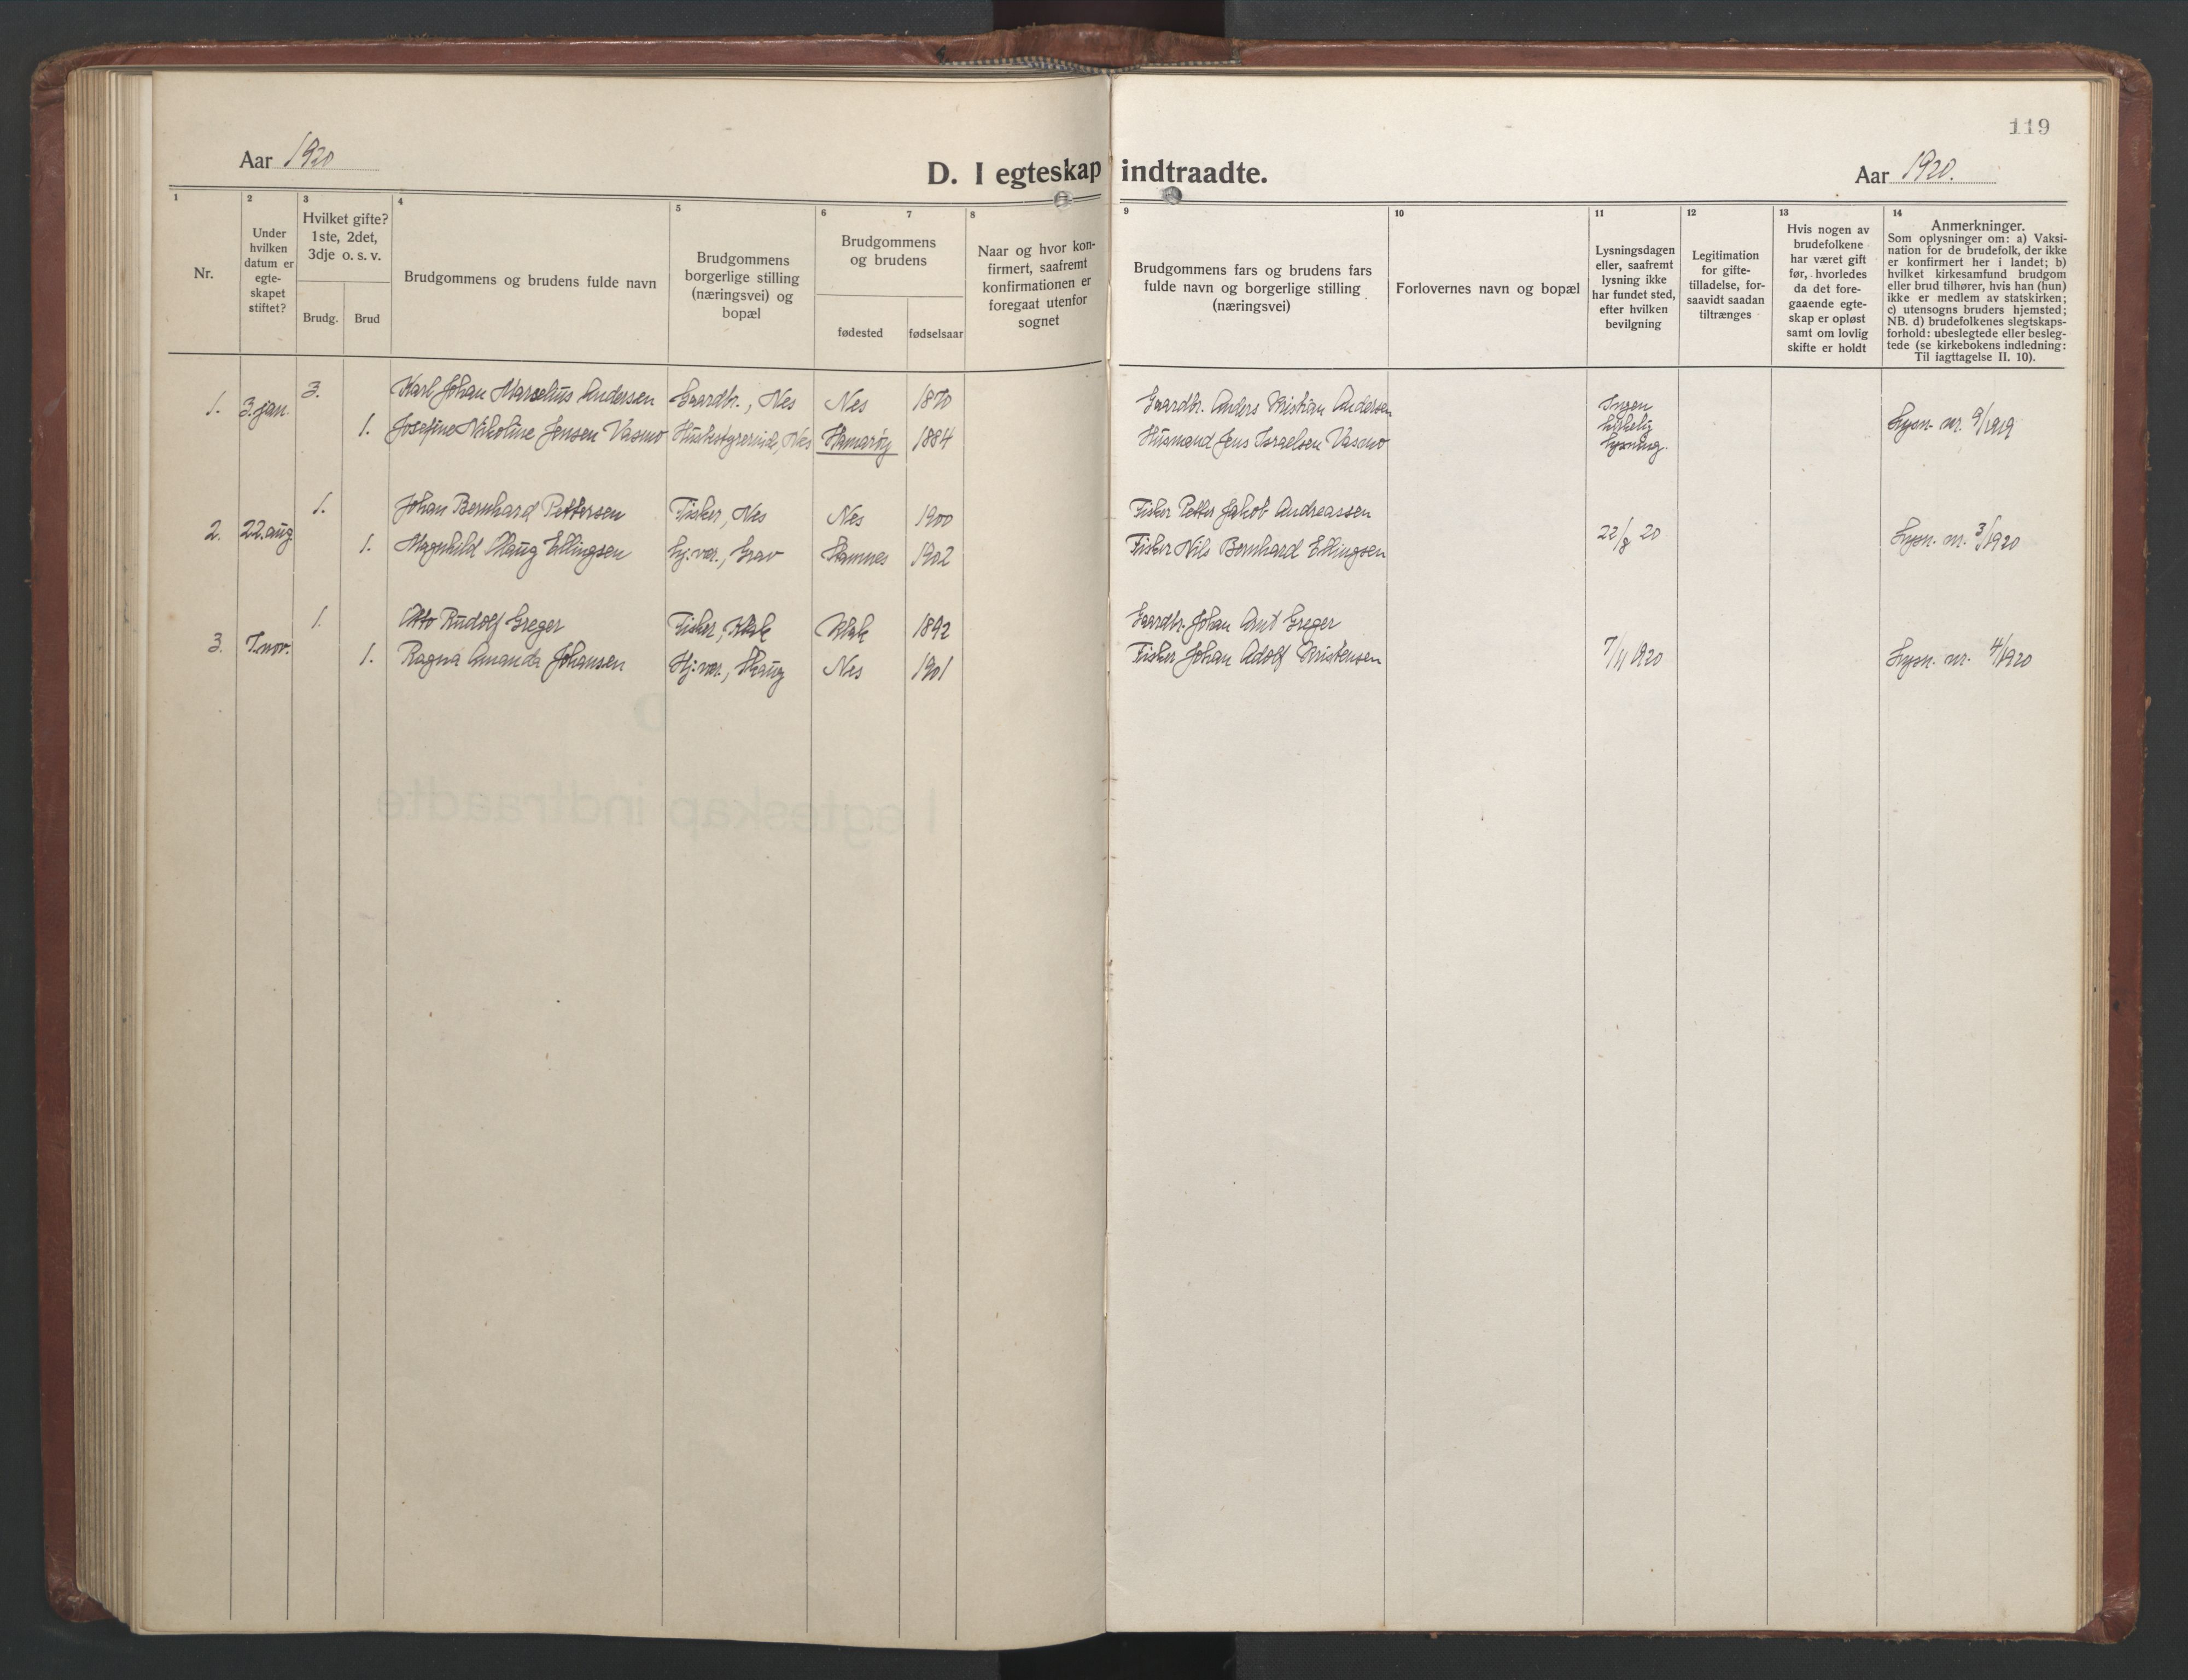 119
Aar 1920
D. I egteskap indtraadte.
Aar 1920.
1
2
3
4
5
6
7
8
9
10
11
12
13
14
Nr.
Under
hvilken
datum er
egte-
skapet
stiftet?
Hvilket gifte?
1ste, 2det,
3dje o. s. v.
Brudg.
Brud
Brudgommens og brudens fulde navn
Brudgommens
borgerlige stilling
(næringsvei) og
bopæl
Brudgommens
og brudens
fødested
fødselsaar
Naar og hvor kon-
firmert, saafremt
konfirmationen er
foregaat utenfor
sognet
Brudgommens fars og brudens fars
fulde navn og borgerlige stilling
(næringsvei)
Forlovernes navn og bopæl
Lysningsdagen
eller, saafremt
lysning ikke
har fundet sted,
efter hvilken
bevilgning
Legitimation
for gifte-
tilladelse, for-
saavidt saadan
tiltrænges
Hvis nogen av
brudefolkene
har været gift
før, hvorledes
da det fore-
gaaende egte-
skap er opløst
samt om lovlig
skifte er holdt
Anmerkninger.
Som oplysninger om: a) Vaksi-
nation for de brudefolk, der ikke
er konfirmert her i landet; b)
hvilket kirkesamfund brudgom
eller brud tilhører, hvis han (hun)
ikke er medlem av statskirken;
c) utensogns bruders hjemsted;
NB. d) brudefolkenes slegtskaps-
forhold: ubeslegtede eller besleg-
tede (se kirkebokens indledning:
Til iagttagelse II. 10).
1. 3. jan. 3. Karl Johan Marselius Andersen Gaardbr., Nes Nes 1870 Gaardbr. Anders Kristian Andersen
1. Josefine Nikoline Jensen Vasmo Husbestyrerinde, Nes Hamarøy 1884 Husmand Jens Israelsen Vasmo
Ingen
kirkelig
lysning.
Lysn. nr. 9/1919
2. 22. aug. 1. Johan Bernhard Pettersen Fisker, Nes Nes 1900 Fisker Petter Jakob Andreassen
1. Magnhild Haug Ellingsen Hj. vær., Grav Stamnes 1902 Fisker Nils Bernhard Ellingsen
22/8 20 Lysn. nr. 3/1920
3. 7. nov. 1. Otto Rudolf Greger Fisker, Klak Klak 1892 Gaardbr. Johan Arnt Greger
1. Ragna Amanda Johansen Hj. vær., Haug Nes 1901 Fisker Johan Adolf Kristensen
7/11 1920 Lysn. nr. 4/1920